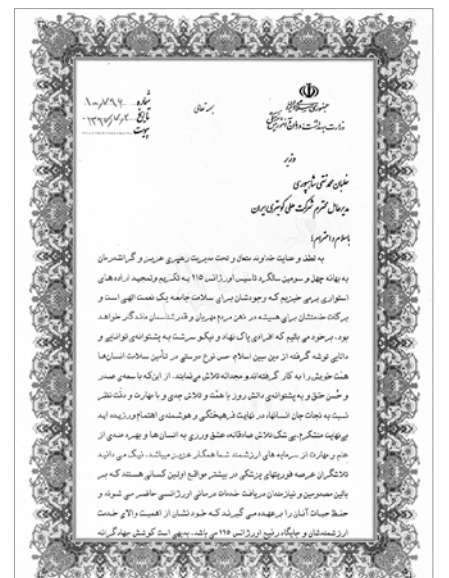 بسمه تعالی
شماره
تاریخ
پیوست
جمهوری اسلامی ایران
وزارت بهداشت، درمان و آموزش پزشکی
وزیر
خلبان محمد تقی
مدیرعامل محترم شرکت هلی کوپتری ایران
باسلام و احترام؛
به لطف و عنایت خداوند متعال و تحت مدیریت رهبری عزیز و گرانقدرمان
به بهانه چهل و سومین سالگرد تاسیس اورژانس ۱۱۵ به تکریم و تمجید اراده های
استواری برمی خیزیم که وجودشان برای سلامت جامعه یک نعمت الهی است و
برکات خدمتشان برای همیشه در ذهن مردم مهربان و قدرشناسمان ماندگار خواهد
بود. برخود می بالیم که افرادی پاک نهاد و نیکو سرشت به پشتوانه‌ی توانایی و
دانایی توشه گرفته از دین مبین اسلام، حس نوع دوستی در تأمین سلامت انسان‌ها
همّت خویش را به کار گرفته‌اند و مجدانه تلاش می‌نمایند. از این‌که با سعه‌ی صدر
و حُسن خلق و به پشتوانه‌ی دانش روز با همّت و تلاش جدی و با مهارت و دقّت نظر
نسبت به نجات جان انسانها، در نهایت فرهیختگی و هوشمندی اهتمام ورزیده اید
بی‌نهایت متشکرم. بی شک تلاش صادقانه، عشق ورزی به انسان ها و بهره مندی از
علم و مهارت از سرمایه های ارزشمند شما همکار عزیز میباشد. نیک می دانید
تلاشگران عرصه فوریتهای پزشکی در بیشتر مواقع اولین کسانی هستند که بر
بالین مصدومین و نیازمندان دریافت خدمات درمانی اورژانسی حاضر می شوند و
حفظ حیات آنان را برعهده می گیرند که خود نشان از اهمیت والای خدمت
ارزشمندشان و جایگاه رفیع اورژانس ۱۱۵ می باشد. بدیهی است کوشش جهادگرانه